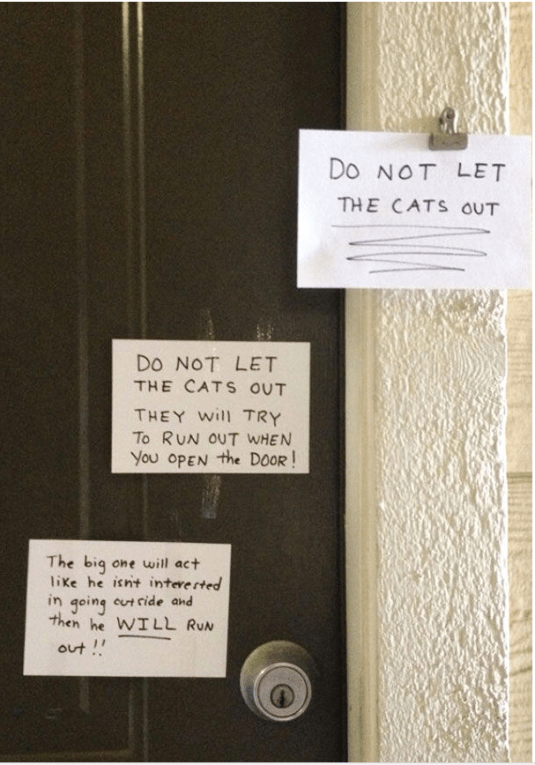 DO NOT LET
THE CATS OUT
DO NOT LET
THE CATS OUT
THEY Will TRY
To RUN OUT WHEN
YOU OPEN the DOOR!
The big one will act
like he isn't interested
in going outside and
then he WILL RUN
out!!